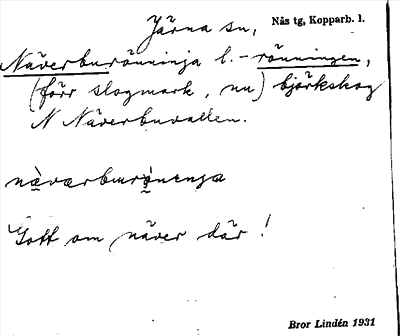 Järna sn, Nås tg, Kopparb. l.
Näverburönninja l. -rönningen,
(förr slogmark, nu) björkskog
N Näverbuvallen.
nàvərbᵫrö̀nenja
Gott om näver där!
Bror Lindén 1931